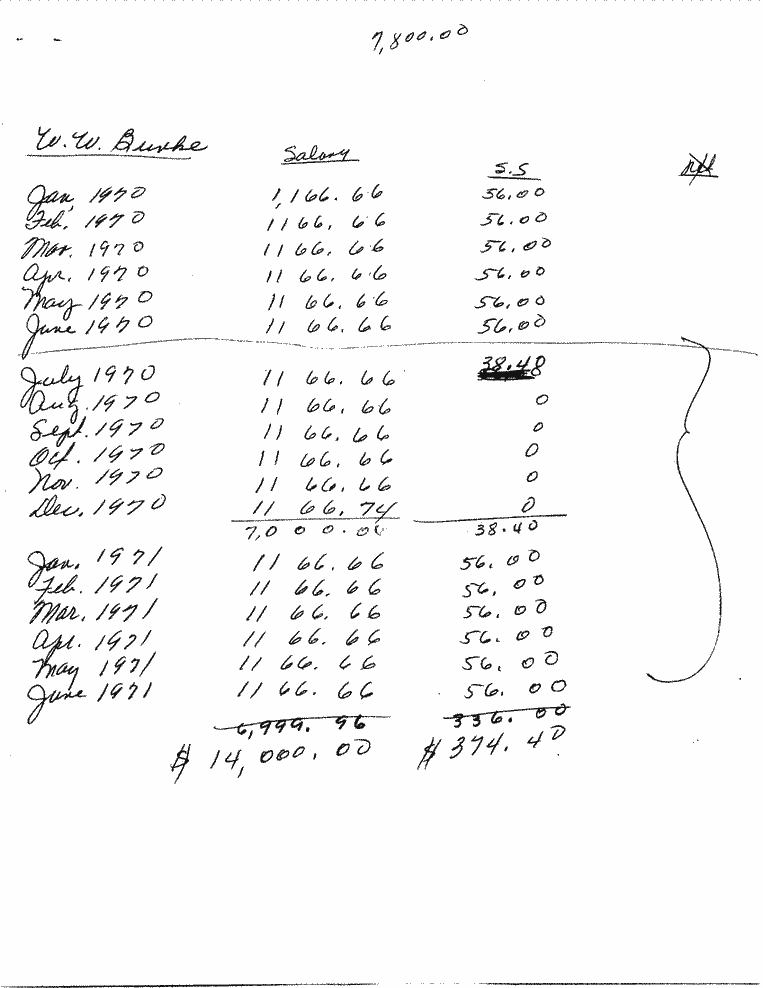 7,800.00
W. W. Burke Salary S.S
Jan, 1970 1,166.66 56.00
Feb. 1970 1166.66 56.00
Mar. 1970 1166.66 56.00
Apr. 1970 1166.66 56.00
May 1970 1166.66 56.00
June 1970 1166.66 56.00
July 1970 1166.66 38.40
Aug. 1970 1166.66 0
Sept. 1970 1166.66 0
Oct. 1970 1166.66 0
Nov. 1970 1166.66 0
Dec. 1970 1166.74 0
7,000.00 38.40
Jan. 1971 1166.66 56.00
Feb. 1971 1166.66 56.00
Mar. 1971 1166.66 56.00
Apr. 1971 1166.66 56.00
May 1971 1166.66 56.00
June 1971 1166.66 56.00
6,999.96 336.00
$ 14,000.00 $ 374.40